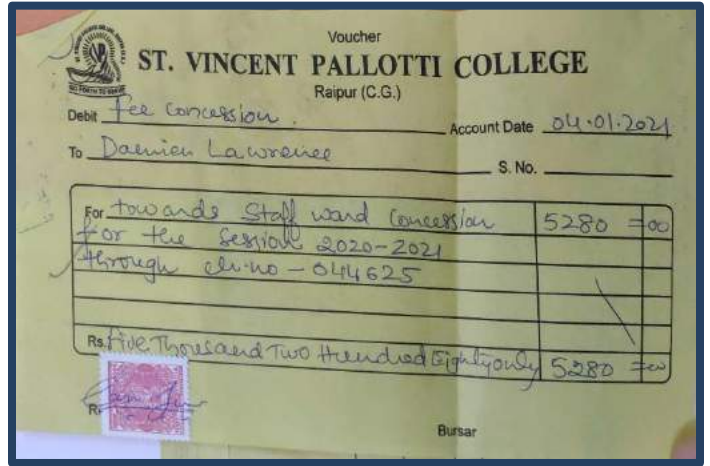 Voucher
ST. VINCENT PALLOTTI COLLEGE
Raipur (C.G.)
GO FORTH TO SERVE
Debit Fee Concession.
Account Date 04.01.2021
To Damien Lawrence
S. No.
For towards Staff ward Concession 5280=00
for the Session 2020-2021
through ch.no - 044625
Rs. Five Thousand Two Hundred Eighty only 5280=00
R.
Bursar